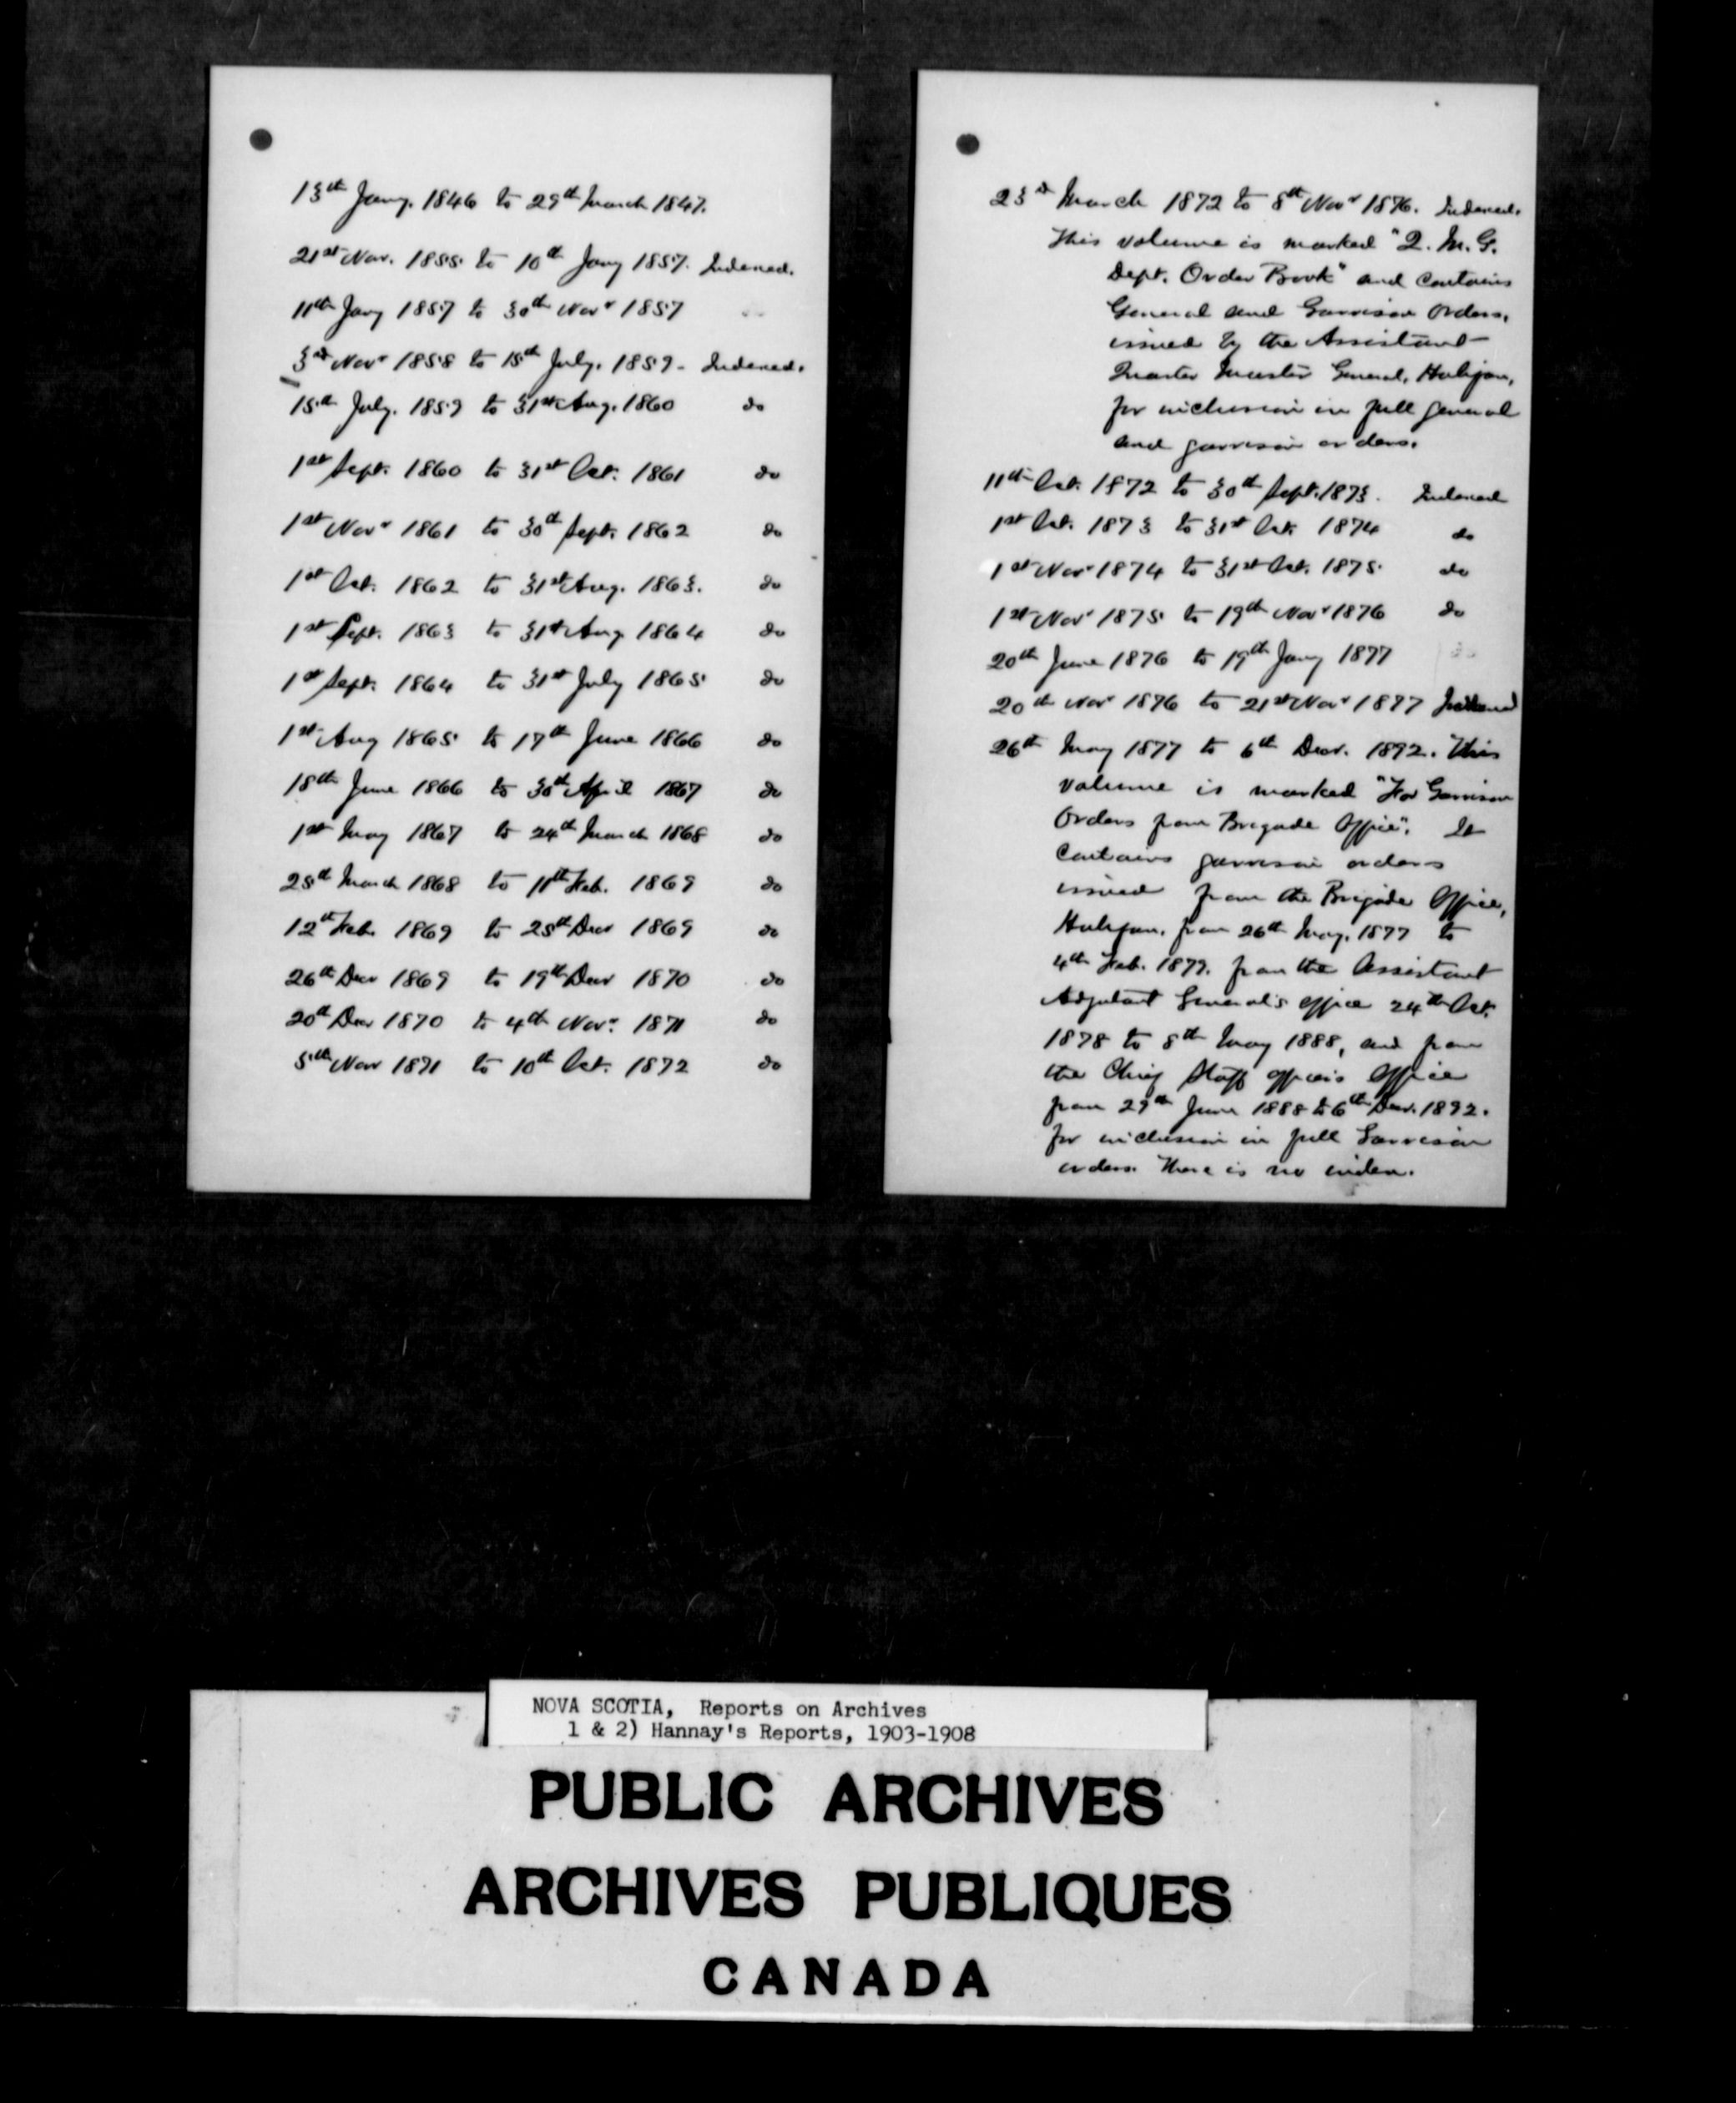 13th Jany. 1846 to 29th March 1847.
21st Nov. 1855 to 10th Jany 1857. Indexed.
11th Jany 1857 to 30th Novr 1857
3rd Novr 1858 to 15th July. 1859 - Indexed.
15th July. 1859 to 31st Aug. 1860 do
1st Sept. 1860 to 31st Oct. 1861 do
1st Novr 1861 to 30th Sept. 1862 do
1st Oct. 1862 to 31st Aug. 1863. do
1st Sept. 1863 to 31st Aug 1864 do
1st Sept. 1864 to 31st July 1865 do
1st Aug 1865 to 17th June 1866 do
18th June 1866 to 30th April 1867 do
1st May 1867 to 24th March 1868 do
25th March 1868 to 11th Feb. 1869 do
12th Feb. 1869 to 25th Decr 1869 do
26th Decr 1869 to 19th Decr 1870 do
20th Decr 1870 to 4th Novr. 1871 do
5th Novr 1871 to 10th Oct. 1872 do
23rd March 1872 to 8th Novr 1876. Indexed.
This volume is marked "Q. M. G.
Dept. Order Book" and contains
General and Garrison Orders,
issued by the Assistant
Quarter Master General, Halifax,
for inclusion in full general
and garrison orders.
11th Oct. 1872 to 30th Sept. 1873. Indexed
1st Oct. 1873 to 31st Oct. 1874 do
1st Novr 1874 to 31st Oct. 1875 do
1st Novr 1875 to 19th Novr 1876 do
20th June 1876 to 19th Jany 1877
20th Novr 1876 to 21st Novr 1877 Indexed
26th May 1877 to 6th Decr. 1892. This
volume is marked "For Garrison
Orders from Brigade Office". It
contains garrison orders
issued from the Brigade Office,
Halifax, from 26th May, 1877 to
4th Feb. 1879. from the Assistant
Adjutant General's office 24th Oct.
1878 to 8th May 1888, and from
the Chief Staff officer's Office
from 29th June 1888 to 6th Decr. 1892.
for inclusion in full Garrison
orders. There is no index.
NOVA SCOTIA, Reports on Archives
1 & 2) Hannay's Reports, 1903-1908
PUBLIC ARCHIVES
ARCHIVES PUBLIQUES
CANADA